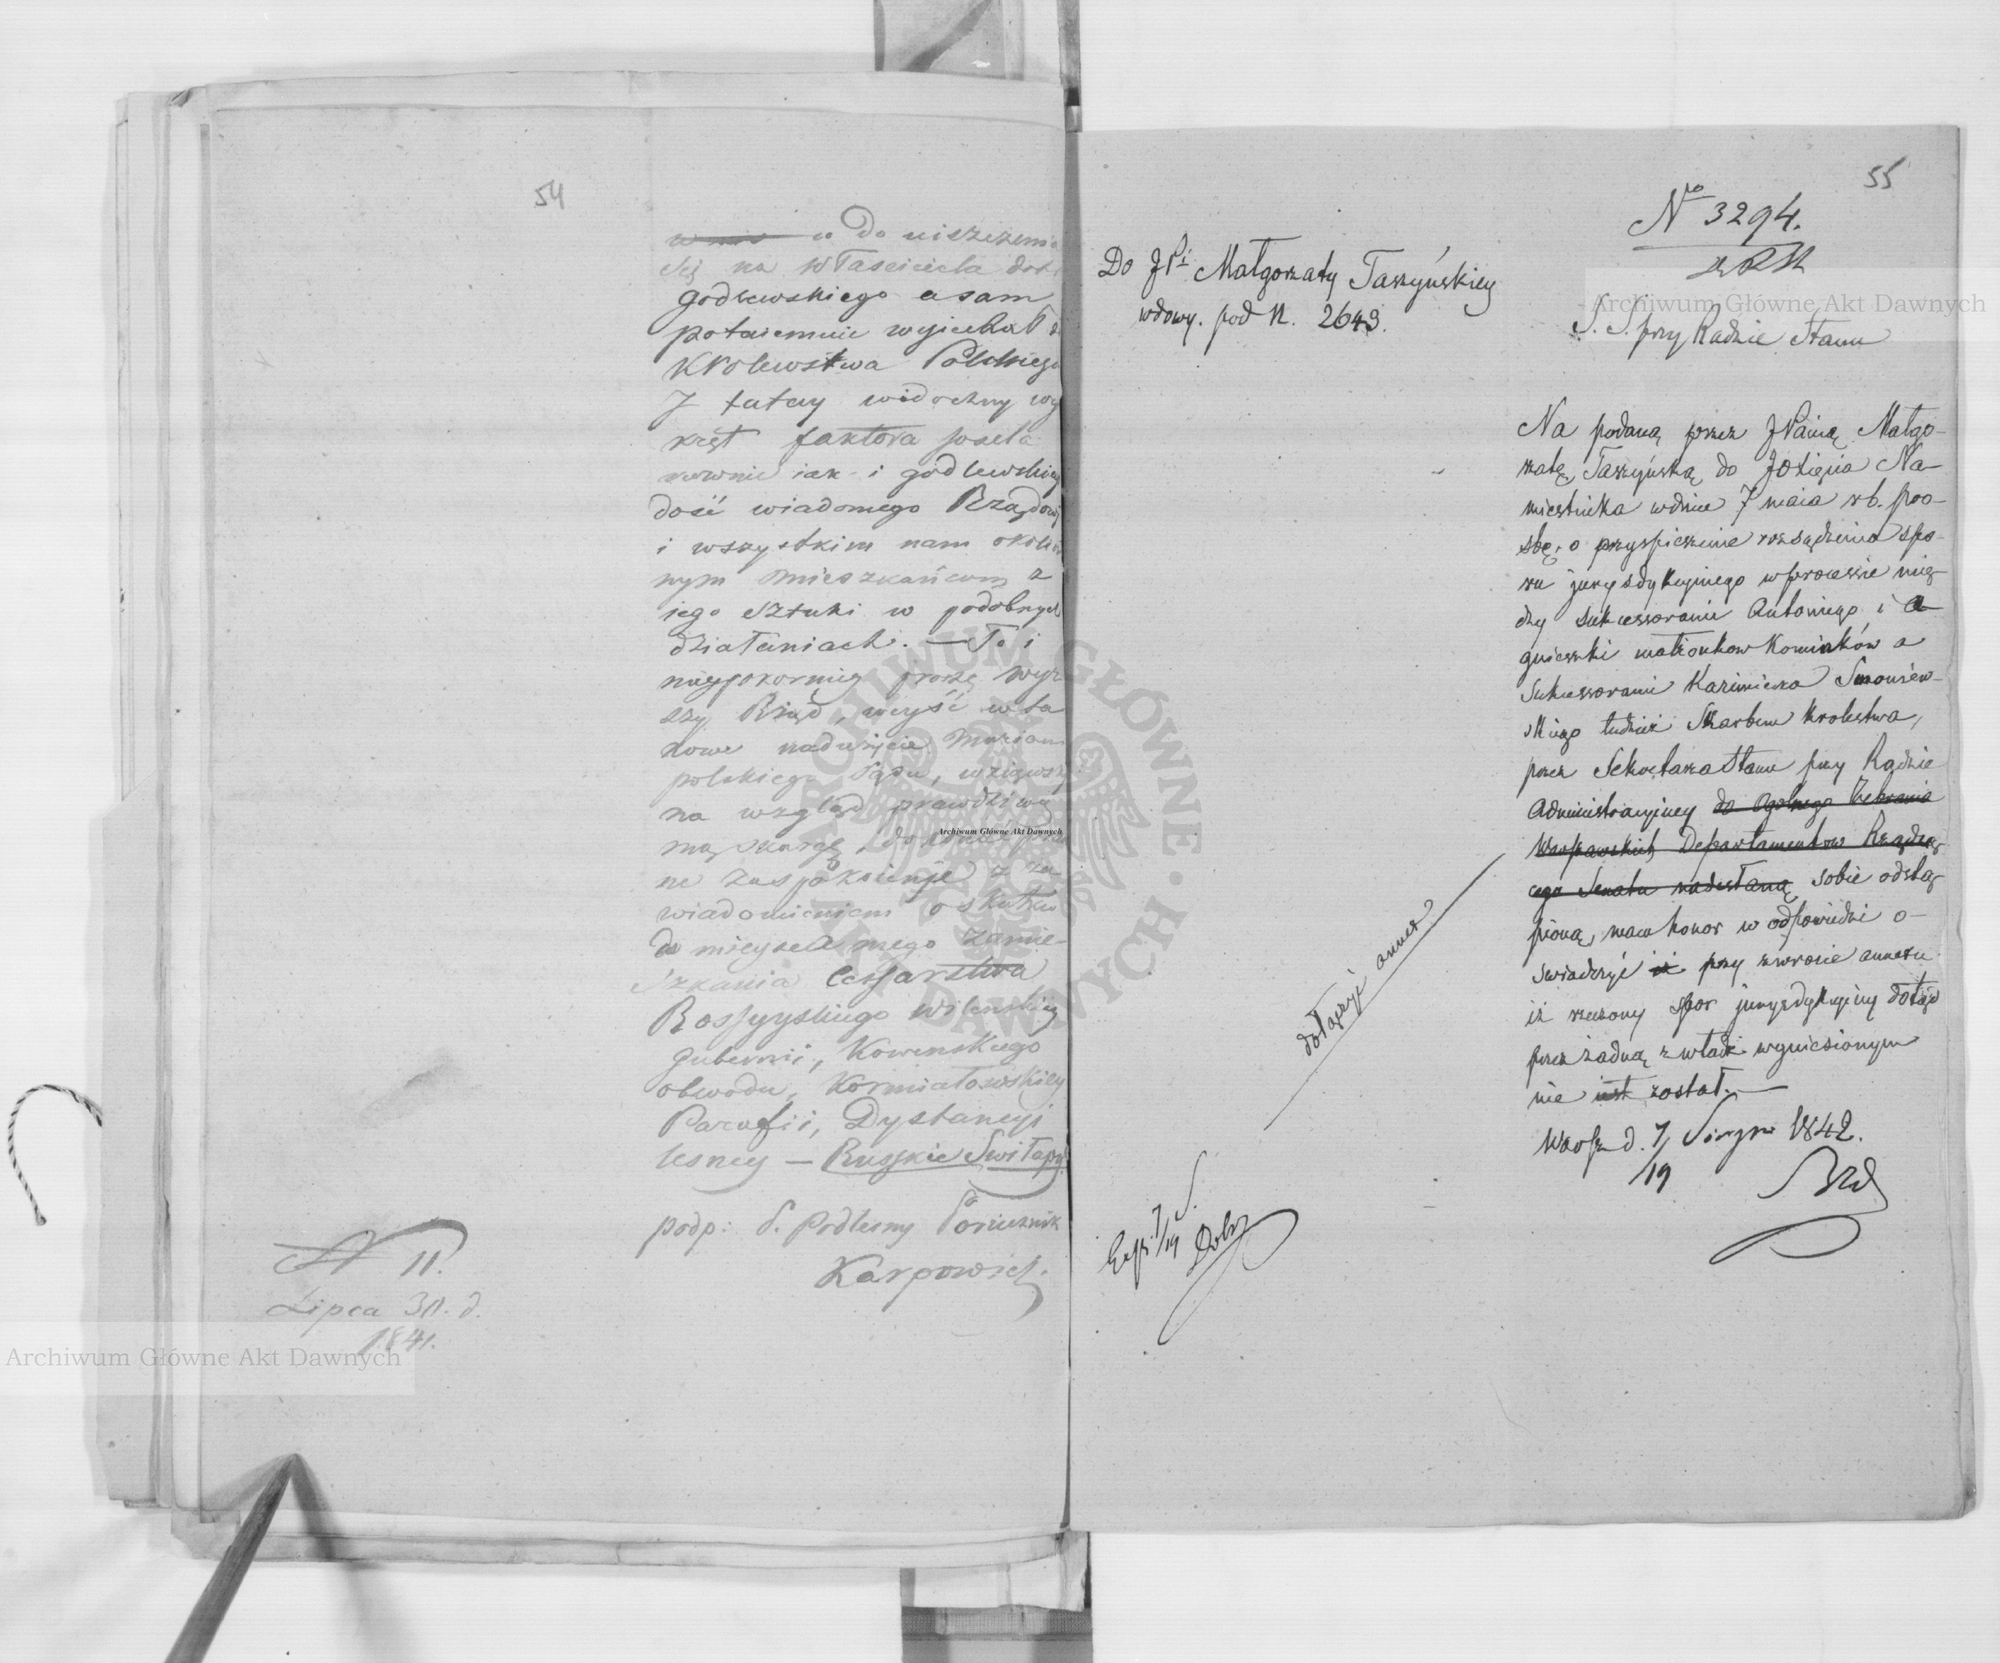 54
a do uiszczenia
się na własciciela dobr
godlewskiego a sam
potaiemnie wyiechał z
Krolewstwa Polskiego
J tutay widoczny wy
kręt faktora Josela
rownie iak i godlewskiey
dość wiadomego Rządowi
i wszystkim nam okolicz
nym mieszkańcom z
iego sztuki w podobnych
działaniach. — To i
naypokorniey proszę wyz
szy Rząd, weyść w ta
kowe nadużycie Mariam
polskiego Sądu, wziąwszy
na wzgląd prawdziwą
mą skargę,
ne zaspokoienie z za
wiadomieniem o skutku
do mieysca mego zamie-
szkania Cesarstwa
Rossyyskiego Wilenskiey
Gubernii, Kowenskiego
obwodu, Kormiałowskiey
Parafii, Dystancyi
lesney — Russkie Switapy
podp: S. Podlesny Porucznik
Karpowicz.
N 11.
Lipca 30. d.
1841.
55
No 3294.
S. S. przy Radzie Stanu
Do JPi Małgorzaty Taszyńskiey
wdowy. pod N. 2643.
Na podaną przez JPanią Małgo-
rzatę Taszyńską do JOXięcia Na-
miestnika w dniu 7 maia rb. proś-
bę, o przyspieszenie rozsądzenia spo-
ru jurysdykcyinego w processie mię-
dzy sukcessorami Antoniego i A-
gnieszki małżonkow Kominków a
Sukcessorami Kazimierza Smoniew-
skiego tudzież Skarbem Krolestwa,
przez Sekretarza Stanu przy Radzie
Administracyiney do Ogolnego Zebrania
Warszawskich Departamentow Rządzą-
cego Senatu nadesłaną sobie odstą-
pioną, mam honor w odpowiedzi o-
swiadczyć iż przy zwrocie annexu
iż rzeczony spor jurysdykcyiny dotąd
przez żadną z władz wyniesionym
nie iest został. —
Warsz d. 7/19 Sierpn 1842.
dołączyć annex
Exp. 7/19 S.